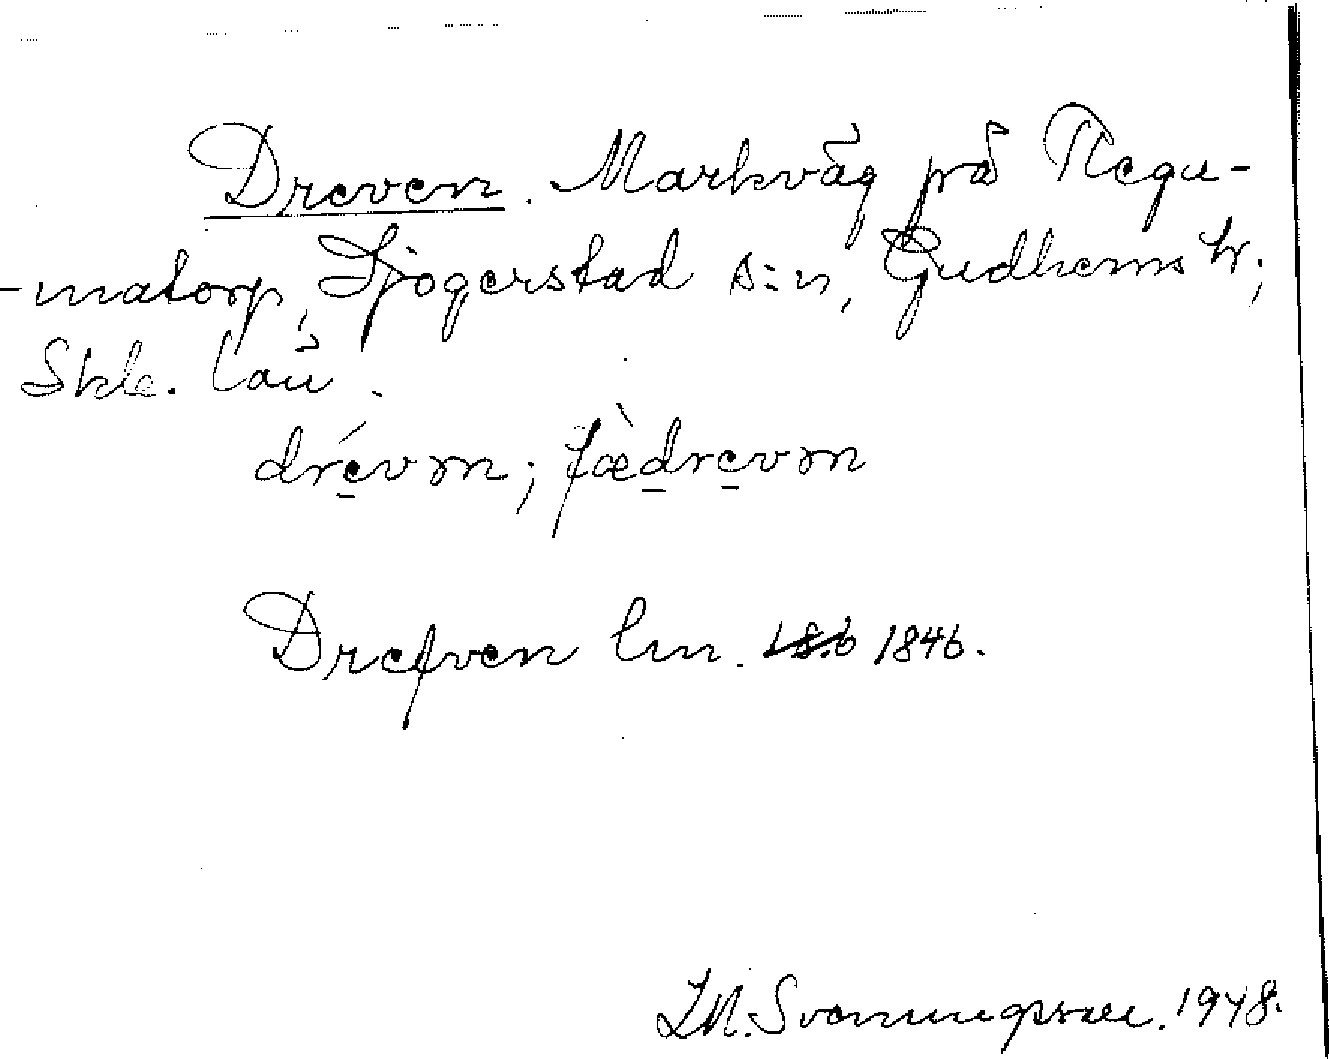 Dreven. Markväg på Regu-
-matorp, Sjogerstad s:n, Gudhems hr;
Skb. län.
drévm; fædrevm
Drefven Lm. 1846.
J.M. Svenningsson. 1948.